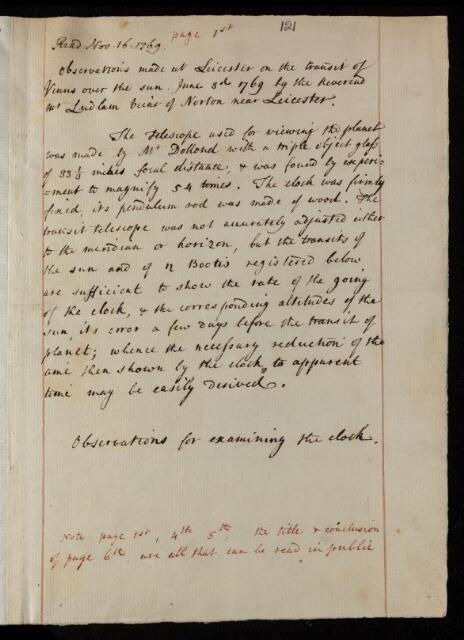 page 1st 121
Read Nov. 16. 1769.
Observations made at Leicester on the transit of
Venus over the sun June 3d 1769 by the Reverend
Mr Ludlam vicar of Norton near Leicester.
The Telescope used for viewing the planet
was made by Mr Dollond with a triple object glass
of 33½ inches focal distance, & was found by experi-
-ment to magnify 54 times. The clock was firmly
fixed, its pendulum rod was made of wood. The
transit telescope was not accurately adjusted either
to the meridian or horizon, but the transits of
the sun and of η Bootis registered below
are sufficient to show the rate of the going
of the clock, & the corresponding altitudes of the
sun its error a few days before the transit of
planet; whence the necessary reduction of the
time then shown by the clock to apparent
time may be easily desived.
Observations for examining the clock.
Note page 1st, 4th 5th, the title & conclusion
of page 6th are all that can be read in public